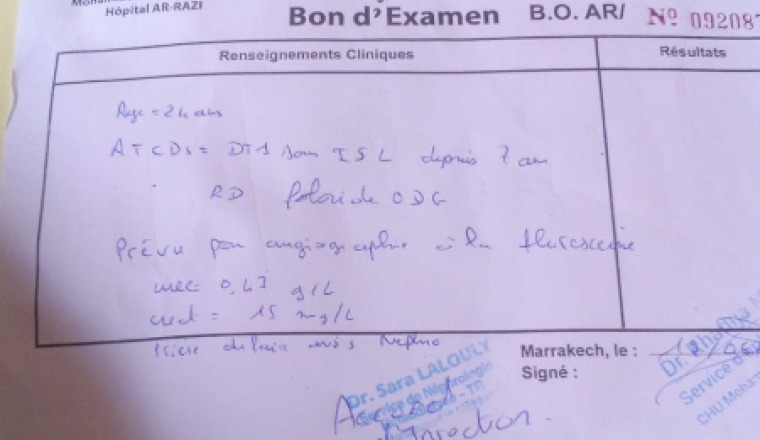 Hôpital AR-RAZI
Bon d'Examen B.O. AR/ Nº 092087
Renseignements Cliniques
Résultats
Age = 24 ans
ATCDs = DT1 sous ISL depuis 7 ans
RD ODG
Prévu pour angiographie à la fluoresceine
uree = 0,47 g/L
creat = 15 mg/L
Prière de faire avis Nephro
Marrakech, le :
Signé :
Dr. Sara LALOULY
Service de Néphrologie
Accord
injection.
Service de
CHU Moha